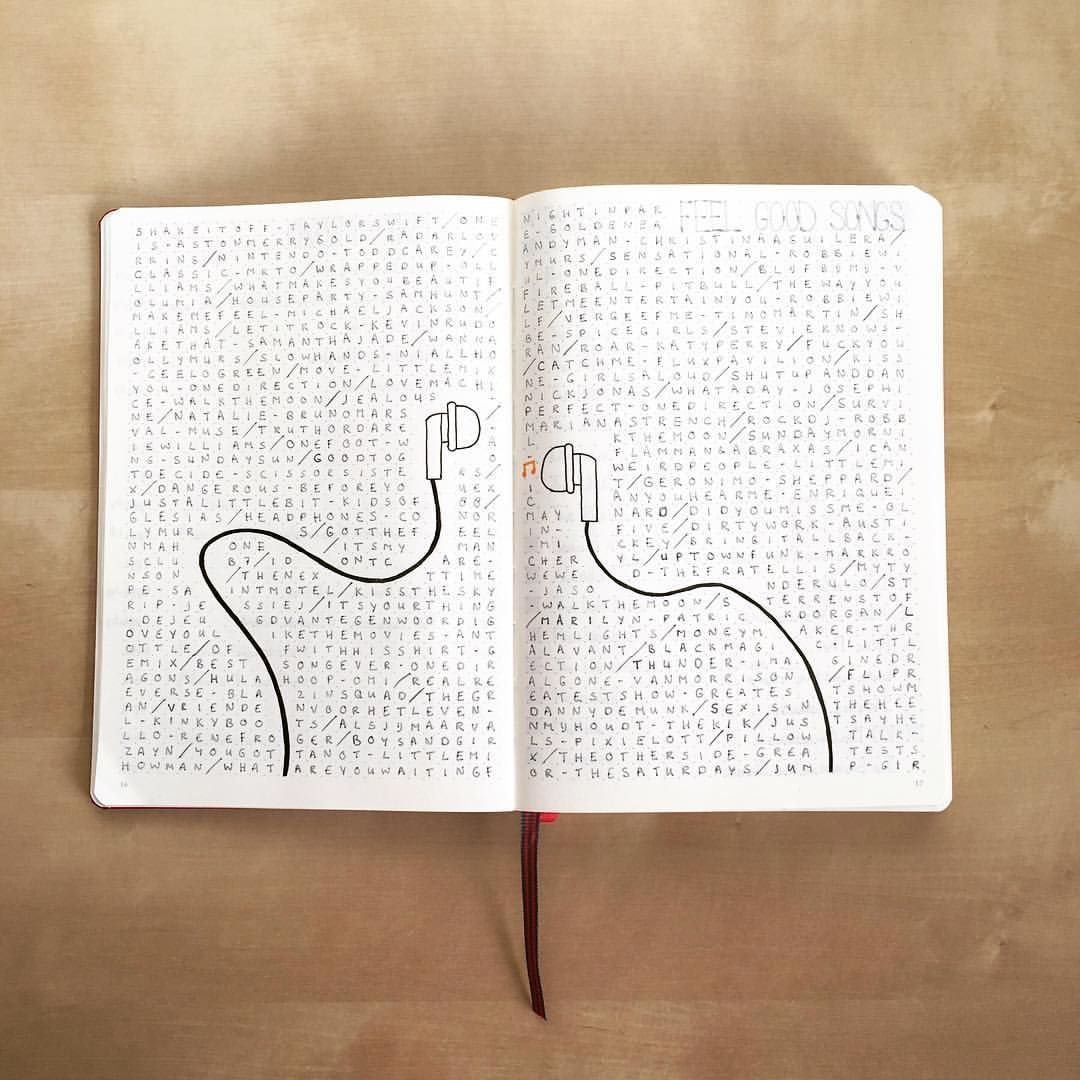 SHAKEITOFF-TAYLORSWIFT/ONE
IS-ASTONMERRYGOLD/RADARLOV
RRING/NINTENDO-TODDCAREY/C
CLASSIC-MKTO/WRAPPEDUP-OLL
LLIAMS/WHATMAKESYOUBEAUTIF
OLUMIA/HOUSEPARTY-SAMHUNT/
MAKEMEFEEL-MICHAELJACKSON/
LLIAMS/LETITROCK-KEVINRUDO
AKETHAT-SAMANTHAJADE/WANNA
OLLYMURS/SLOWHANDS-NIALLHO
-CEELOGREEN/MOVE-LITTLEMIX
YOU-ONEDIRECTION/LOVEMACHI
CE-WALKTHEMOON/JEALOUS
NE/NATALIE-BRUNOMARS
VAL-MUSE/TRUTHORDARE
IEWILLIAMS/ONEFOOT-W
NG-SUNDAYSUN/GOODTOG
TODECIDE-SCISSORSISTE RS/
X/DANGEROUS-BEFOREYO UEX
JUSTALITTLEBIT-KIDSOF
GLESIAS/HEADPHONES-CO NOR
LYMUR S/GOTTHEF EEL
NMAH ONE /ITSMY MAN
SCLU B7/ID ONTC ARE-
NSON /THENEX TTIME
PE-SA INTMOTEL/KISSTHESKY
RIP-JE SSIEJ/ITSYOURTHING
-DEJEU GDVANTEGENWOORDIG
OVEYOUL IKETHEMOVIES-ANT
OTTLE/OF FWITHHISSHIRTG
EMIX/BEST SONGEVER-ONEDIR
AGONS/HULA HOOP-OMI/REALRE
EVERSE-BLA ZINSQUAD/THEGR
AN/VRIENDE NVOORHETLEVEN-
L-KINKYBOO TS/ALSJIJMAARVA
LLO-RENEFRO GER/BOYSANDGIR
ZAYN/YOUGOT TANOT-LITTLEMI
HOWMAN/WHAT AREYOUWAITINGF
16
FEEL GOOD SONGS
NIGHTINPAR
E-GOLDENEA
ANDYMAN-CHRISTINAAGUILERA/
YMURS/SENSATIONAL-ROBBIEWI
UL-ONEDIRECTION/
FIREBALL-PITBULL/THEWAYYOU
LETMEENTERTAINYOU-ROBBIEWI
LF/VERGEEFME-TINOMARTIN/SH
BE-SPICEGIRLS/STEVIEKNOWS-
RAN/ROAR-KATYPERRY/FUCKYOU
/CATCHME-FLUXPAVILION/KISS
NE-GIRLSALOUD/SHUTUPANDDAN
NICKJONAS/WHATADAY-JOSEPHI
PERFECT-ONEDIRECTION/SURVI
MARIANASTRENCH/ROCKDJ-ROBB
KTHEMOON/SUNDAYMORNI
FLAMMANGABRAXAS/HEAR
WEIRDPEOPLE-LITTLEMI
T/GERONIMO-SHEPPARD/
ANYOUHEARME-ENRIQUEI
MAY NARD/DIDYOUMISSME-OL
IN- FIVE/DIRTYWORK-AUSTI
-MI CKEY/BRINGITALLBACK-
CHER YL/UPTOWNFUNK-MARKRO
WEWE D-THEFRATELLIS/MYTY
-JASO NDERULO/ST
-WALKTHEMOON/S TERRENSTOF
/MARILYN-PATRI CKDORGAN/L
HEMLIGHTS/MONEYM AKER-THR
ALAVANT/BLACKMAGI C-LITTL
ECTION/THUNDER-IMA GINEDR
ALGONE-VANMORRISON /FLIPR
EATESTSHOW-GREATES TSHOWM
DANNYDEMUNK/SEXISIN THEHEE
NMYHOUDT-THEKIK/JUS TSAYHE
LS-PIXIELOTT/PILLOW TALK-
X/THEOTHERSIDE-GREA TESTS
OR-THESATURDAYS/JUM P-GIR
17